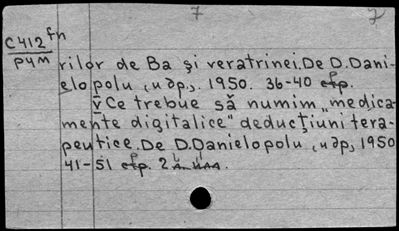 7 7
C412 fn
РУМ
rilor de Ba şi veratrinei. De D. Dani-
elopolu (и др.). 1950. 36-40 стр.
V Ce trebue să numim „medica-
mente digitalice" deducţiuni tera-
peutice. De D. Danielopolu (и др.) 1950
41-51 стр. 2